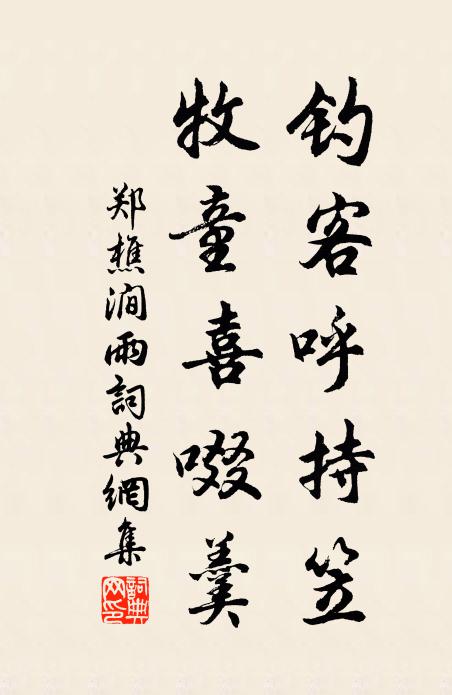 钓客呼持笠
牧童喜啜羹
郑樵涧雨詞典網集
詞典网印